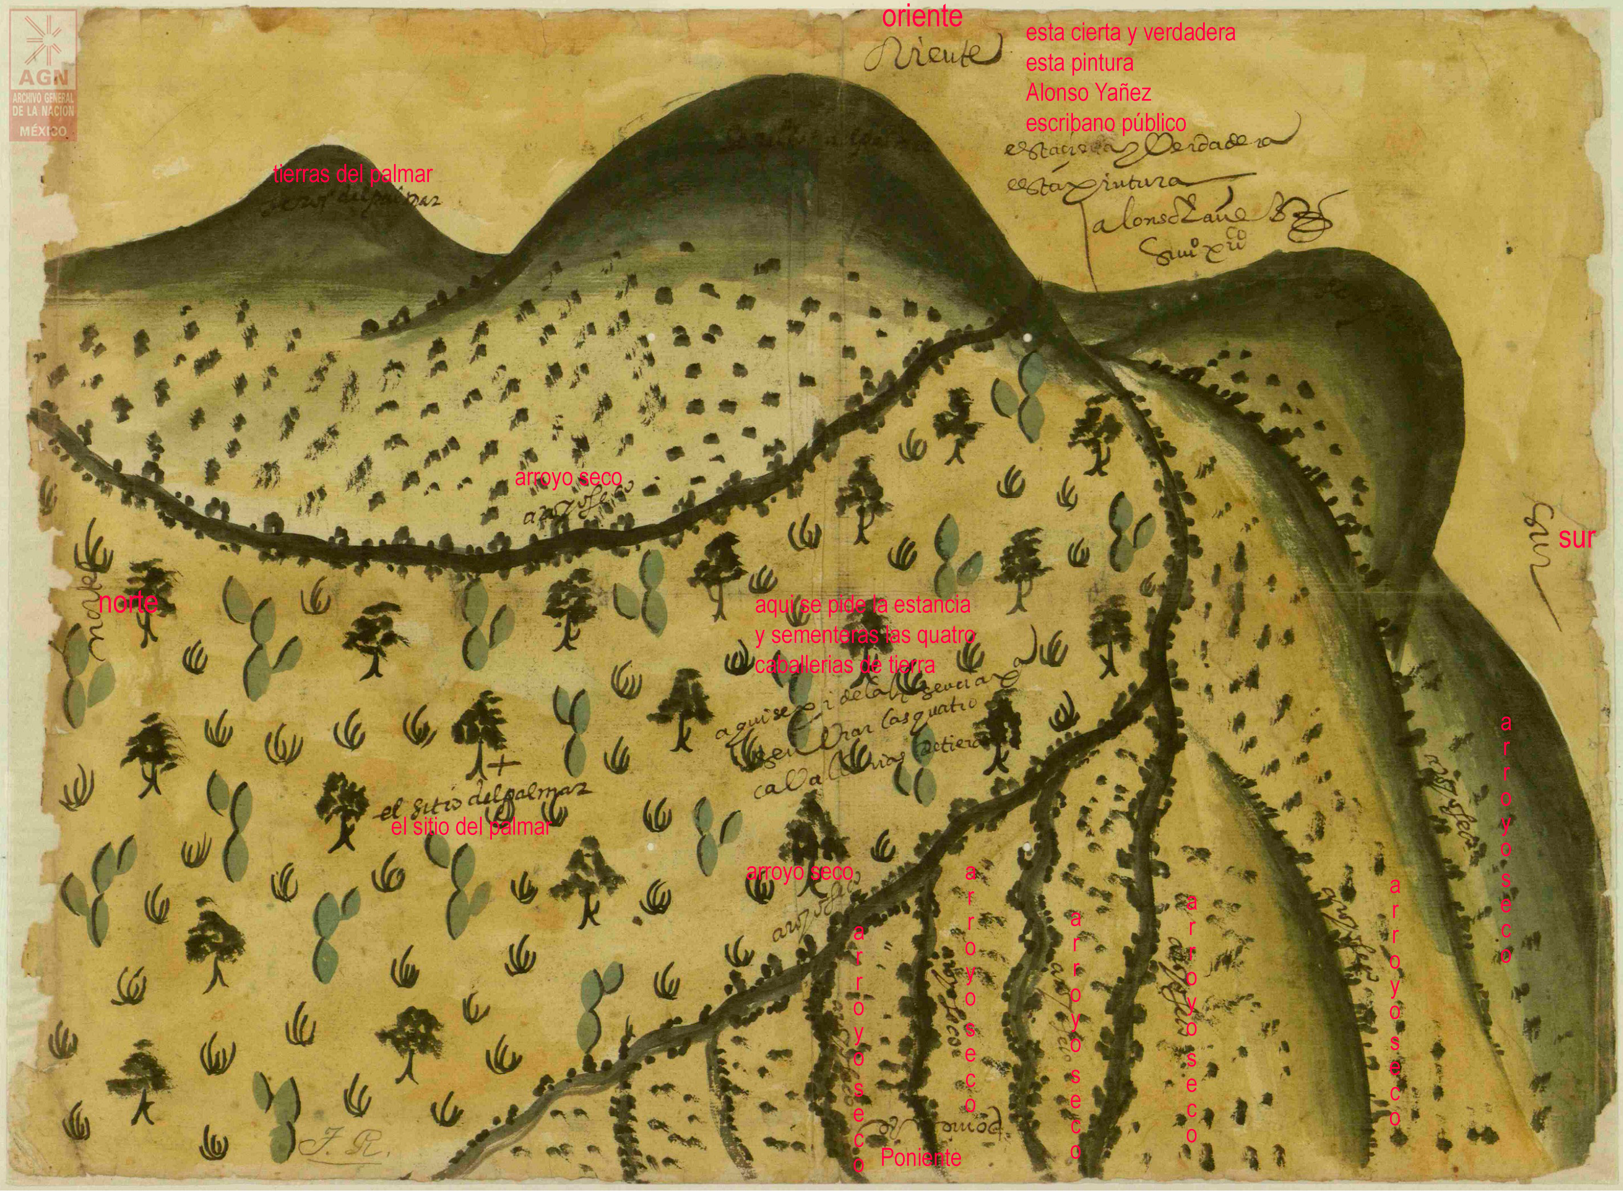 AGN
ARCHIVO GENERAL
DE LA NACION
MÉXICO
oriente
Oriente
esta cierta y verdadera
esta pintura
Alonso Yañez
escribano público
esta cierta y Verdadera
esta pintura
alonso Yañe
tierras del palmar
del palmar
arroyo seco
arroyo seco
sur
Sur
norte
norte
aqui se pide la estancia
y sementeras las quatro
caballerias de tierra
aqui se pide la
las quatro
caVallerias de tierra
el sitio del palmar
el sitio del palmar
arroyo seco
arroyo seco
arroyo seco
arroyo seco
arroyo seco
arroyo seco
arroyo seco
arroyo seco
arroyo seco
arroyo seco
arroyo seco
arroyo seco
arroyo seco
arroyo seco
Poniente
J. R.